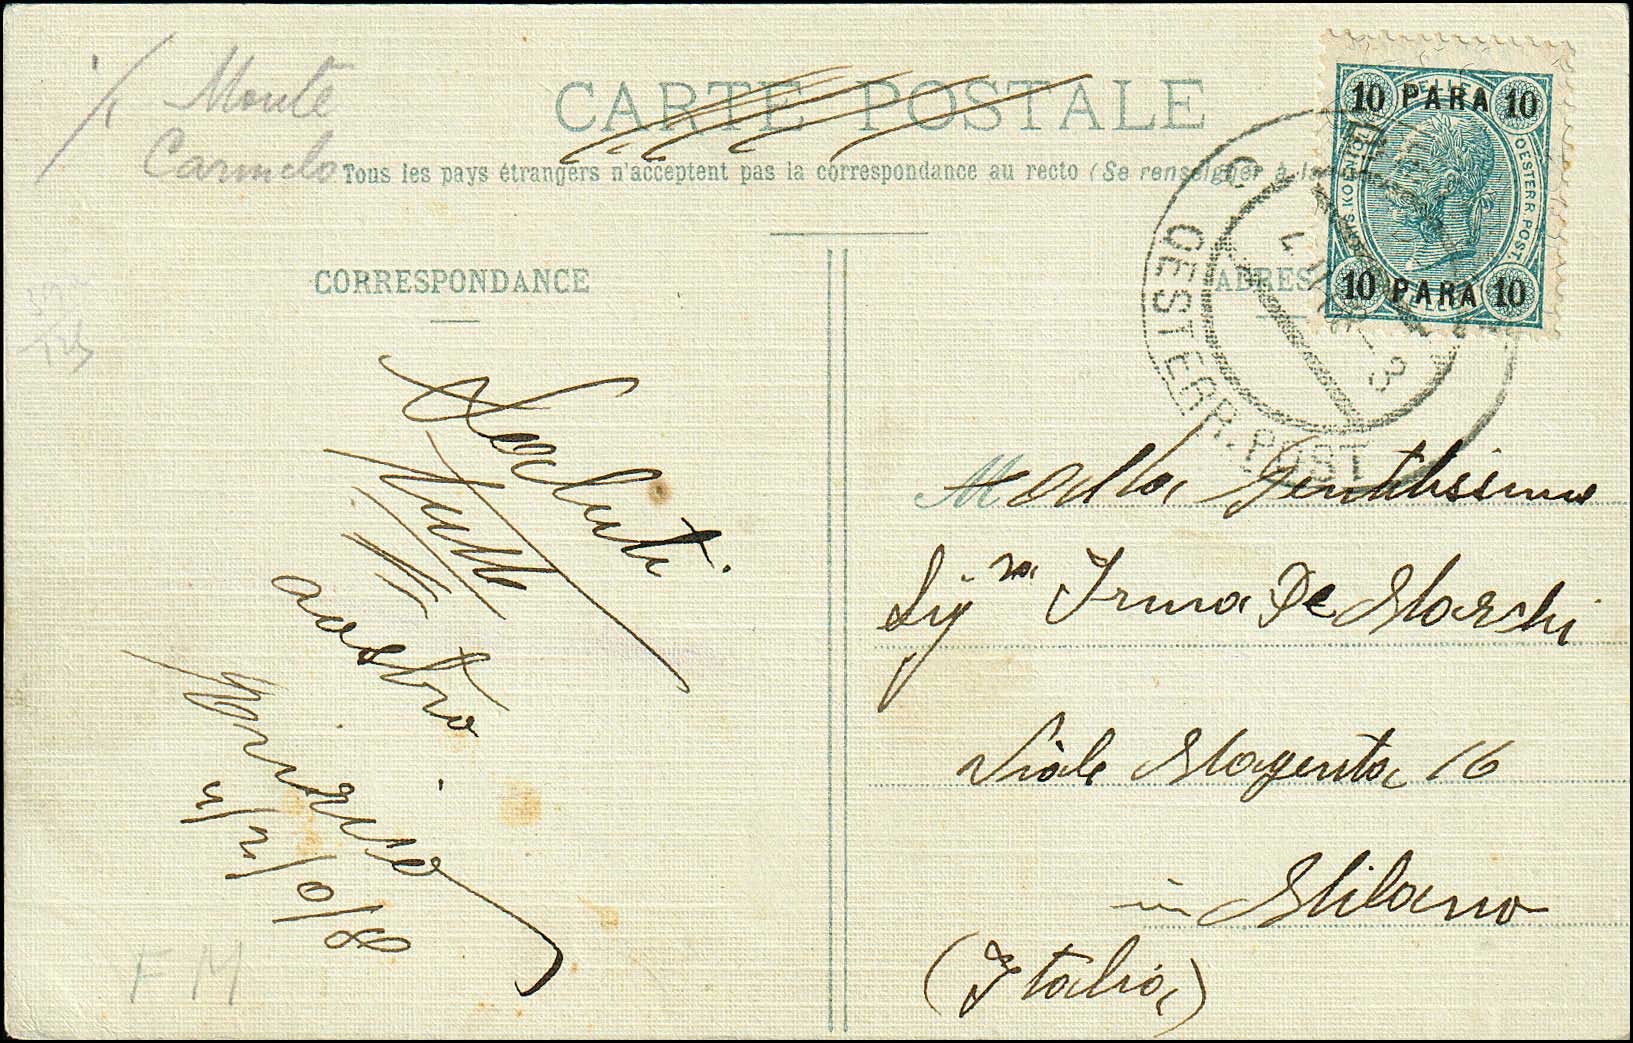 Monte
Carmelo
CARTE POSTALE
Tous les pays étrangers n'acceptent pas la correspondance au recto (Se renseigner à la
10 PARA 10
10 PARA 10
OESTERR. POST.
OESTERR. POST
CORRESPONDANCE
ADRES
Saluti
nostro
4/2/08
M alla Gentilissima
Sigra Irma De Marchi
Viale Magenta 16
in Milano
(Italia)
FM